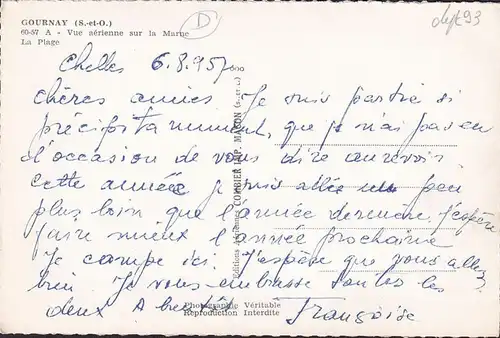 GOURNAY (S.-et-O.)
60-57 A - Vue aérienne sur la Marne
La Plage
D
dept 93
Chelles 6.8.957
chères amies Je suis partie si
précipitamment, que je n'ai pas eu
d'occasion de vous dire aurevoir
cette année je suis allée un peu
plus loin que l'année dernière, j'espère
faire mieux l'année prochaine
Je campe ici. J'espère que vous allez
bien Je vous embrasse toutes les
deux A bientôt Françoise
Photographie Véritable
Reproduction Interdite
COMBIER IMP. MACON